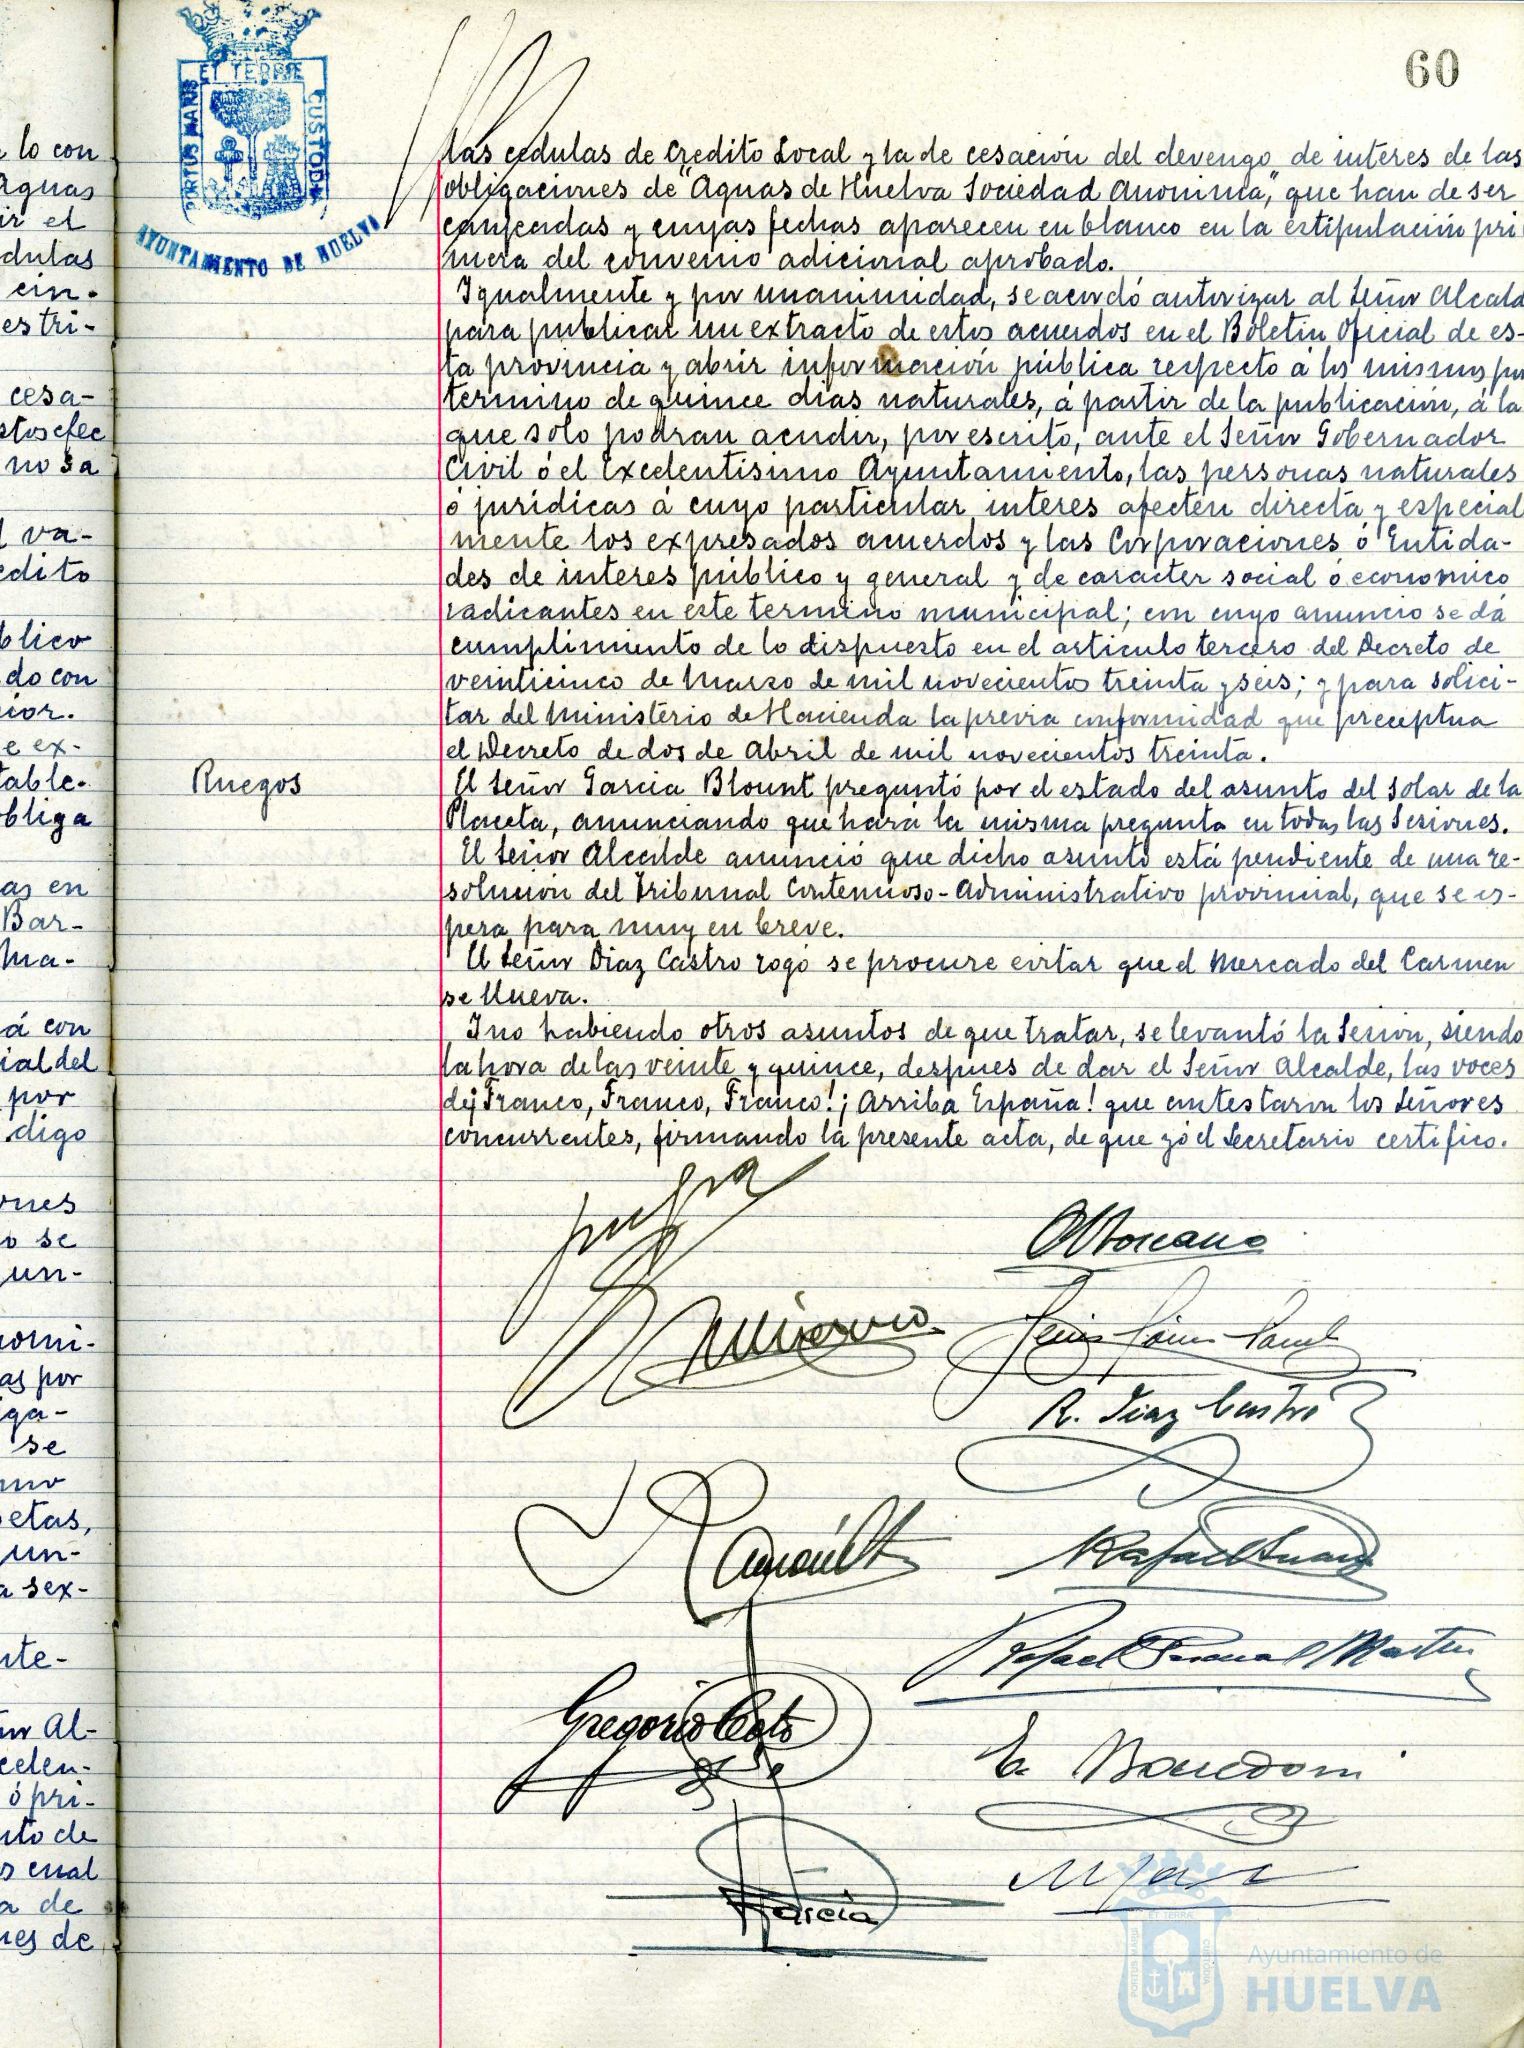 60
PORTUS MARIS ET TERRE CUSTODIA
AYUNTAMIENTO DE HUELVA
las cedulas de Credito Local y la de cesación del devengo de interes de las
obligaciones de "Aguas de Huelva Sociedad Anonima", que han de ser
canjeadas y cuyas fechas aparecen en blanco en la estipulación pri
mera del convenio adicional aprobado.
Igualmente y por unanimidad, se acordó autorizar al Señor Alcald
para publicar un extracto de estos acuerdos en el Boletin Oficial de es-
ta provincia y abrir información pública respecto á los mismos por
termino de quince dias naturales, á partir de la publicación, á la
que solo podran acudir, por escrito, ante el Señor Gobernador
Civil ó el Excedentisimo Ayuntamiento, las personas naturales
ó juridicas á cuyo particular interes afecten directa y especial
mente los expresados acuerdos y las Corporaciones ó Entida-
des de interes público y general y de caracter social ó economico
radicantes en este termino municipal; con cuyo anuncio se dá
cumplimiento de lo dispuesto en el articulo tercero del Decreto de
veinticinco de Marzo de mil novecientos treinta y seis; y para solici-
tar del Ministerio de Hacienda la previa conformidad que preceptua
el Decreto de dos de Abril de mil novecientos treinta.
Ruegos
El Señor Garcia Blount preguntó por el estado del asunto del solar de la
Placeta, anunciando que hará la misma pregunta en todas las Sesiones.
El Señor Alcalde anunció que dicho asunto está pendiente de una re-
solución del Tribunal Contencioso-Administrativo provincial, que se es-
pera para muy en breve.
El Señor Diaz Castro rogó se procure evitar que el Mercado del Carmen
se llueva.
Y no habiendo otros asuntos de que tratar, se levantó la Sesion, siendo
la hora de las veinte y quince, despues de dar el Señor Alcalde, las voces
de ¡Franco, Franco, Franco! ¡Arriba España! que contestaron los Señores
concurrentes, firmando la presente acta, de que yo el Secretario certifico.
R. Diaz Castro
Rafael Suarez
Gregorio
Garcia
lo con
Aguas
ir el
dulas
cin-
estri-
cesa-
stos efec
no sa
va-
edito
blico
do con
rior.
e ex-
table-
obliga
as en
Bar-
ma-
á con
ial del
por
digo
ones
o se
un-
nomi-
as por
iga-
se
mo
etas,
un-
a sex-
nte-
or Al-
celen-
ó pri-
nto de
s cual
a de
nes de
ET TERRE
Ayuntamiento de
HUELVA